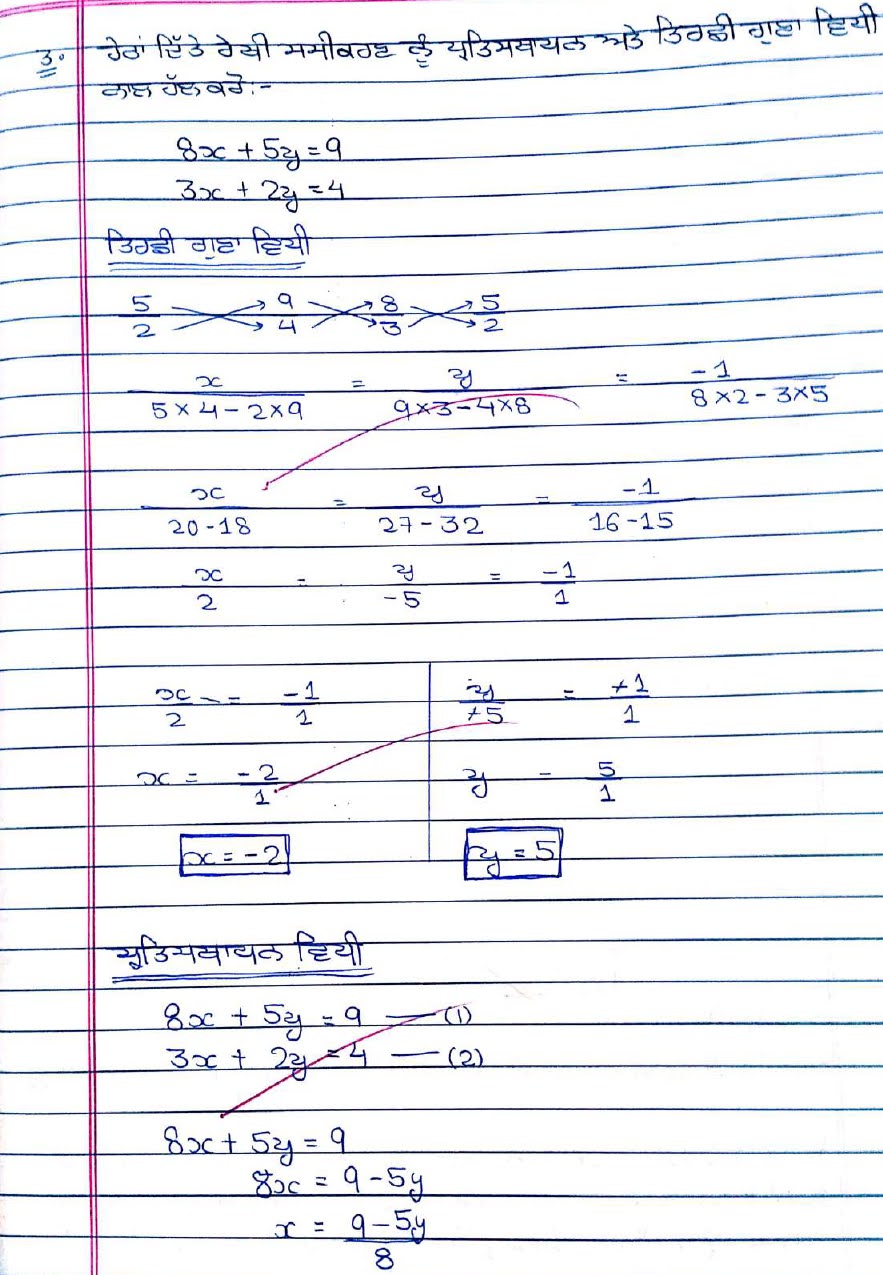 3. ਹੇਠਾਂ ਦਿੱਤੇ ਰੇਖੀ ਸਮੀਕਰਣ ਨੂੰ ਪ੍ਰਤਿਸਥਾਪਨ ਅਤੇ ਤਿਰਛੀ ਗੁਣਾ ਵਿਧੀ
ਨਾਲ ਹੱਲ ਕਰੋ:-
8x + 5y = 9
3x + 2y = 4
ਤਿਰਛੀ ਗੁਣਾ ਵਿਧੀ
5 9 8 5
2 4 3 2
x = y = -1
5×4-2×9 9×3-4×8 8×2-3×5
x = y = -1
20-18 27-32 16-15
x = y = -1
2 -5 1
x = -1 y = +1
2 1 +5 1
x = -2 y = 5
1 1
x = -2 y = 5
ਪ੍ਰਤਿਸਥਾਪਨ ਵਿਧੀ
8x + 5y = 9 — (1)
3x + 2y = 4 — (2)
8x + 5y = 9
8x = 9 - 5y
x = 9 - 5y
8